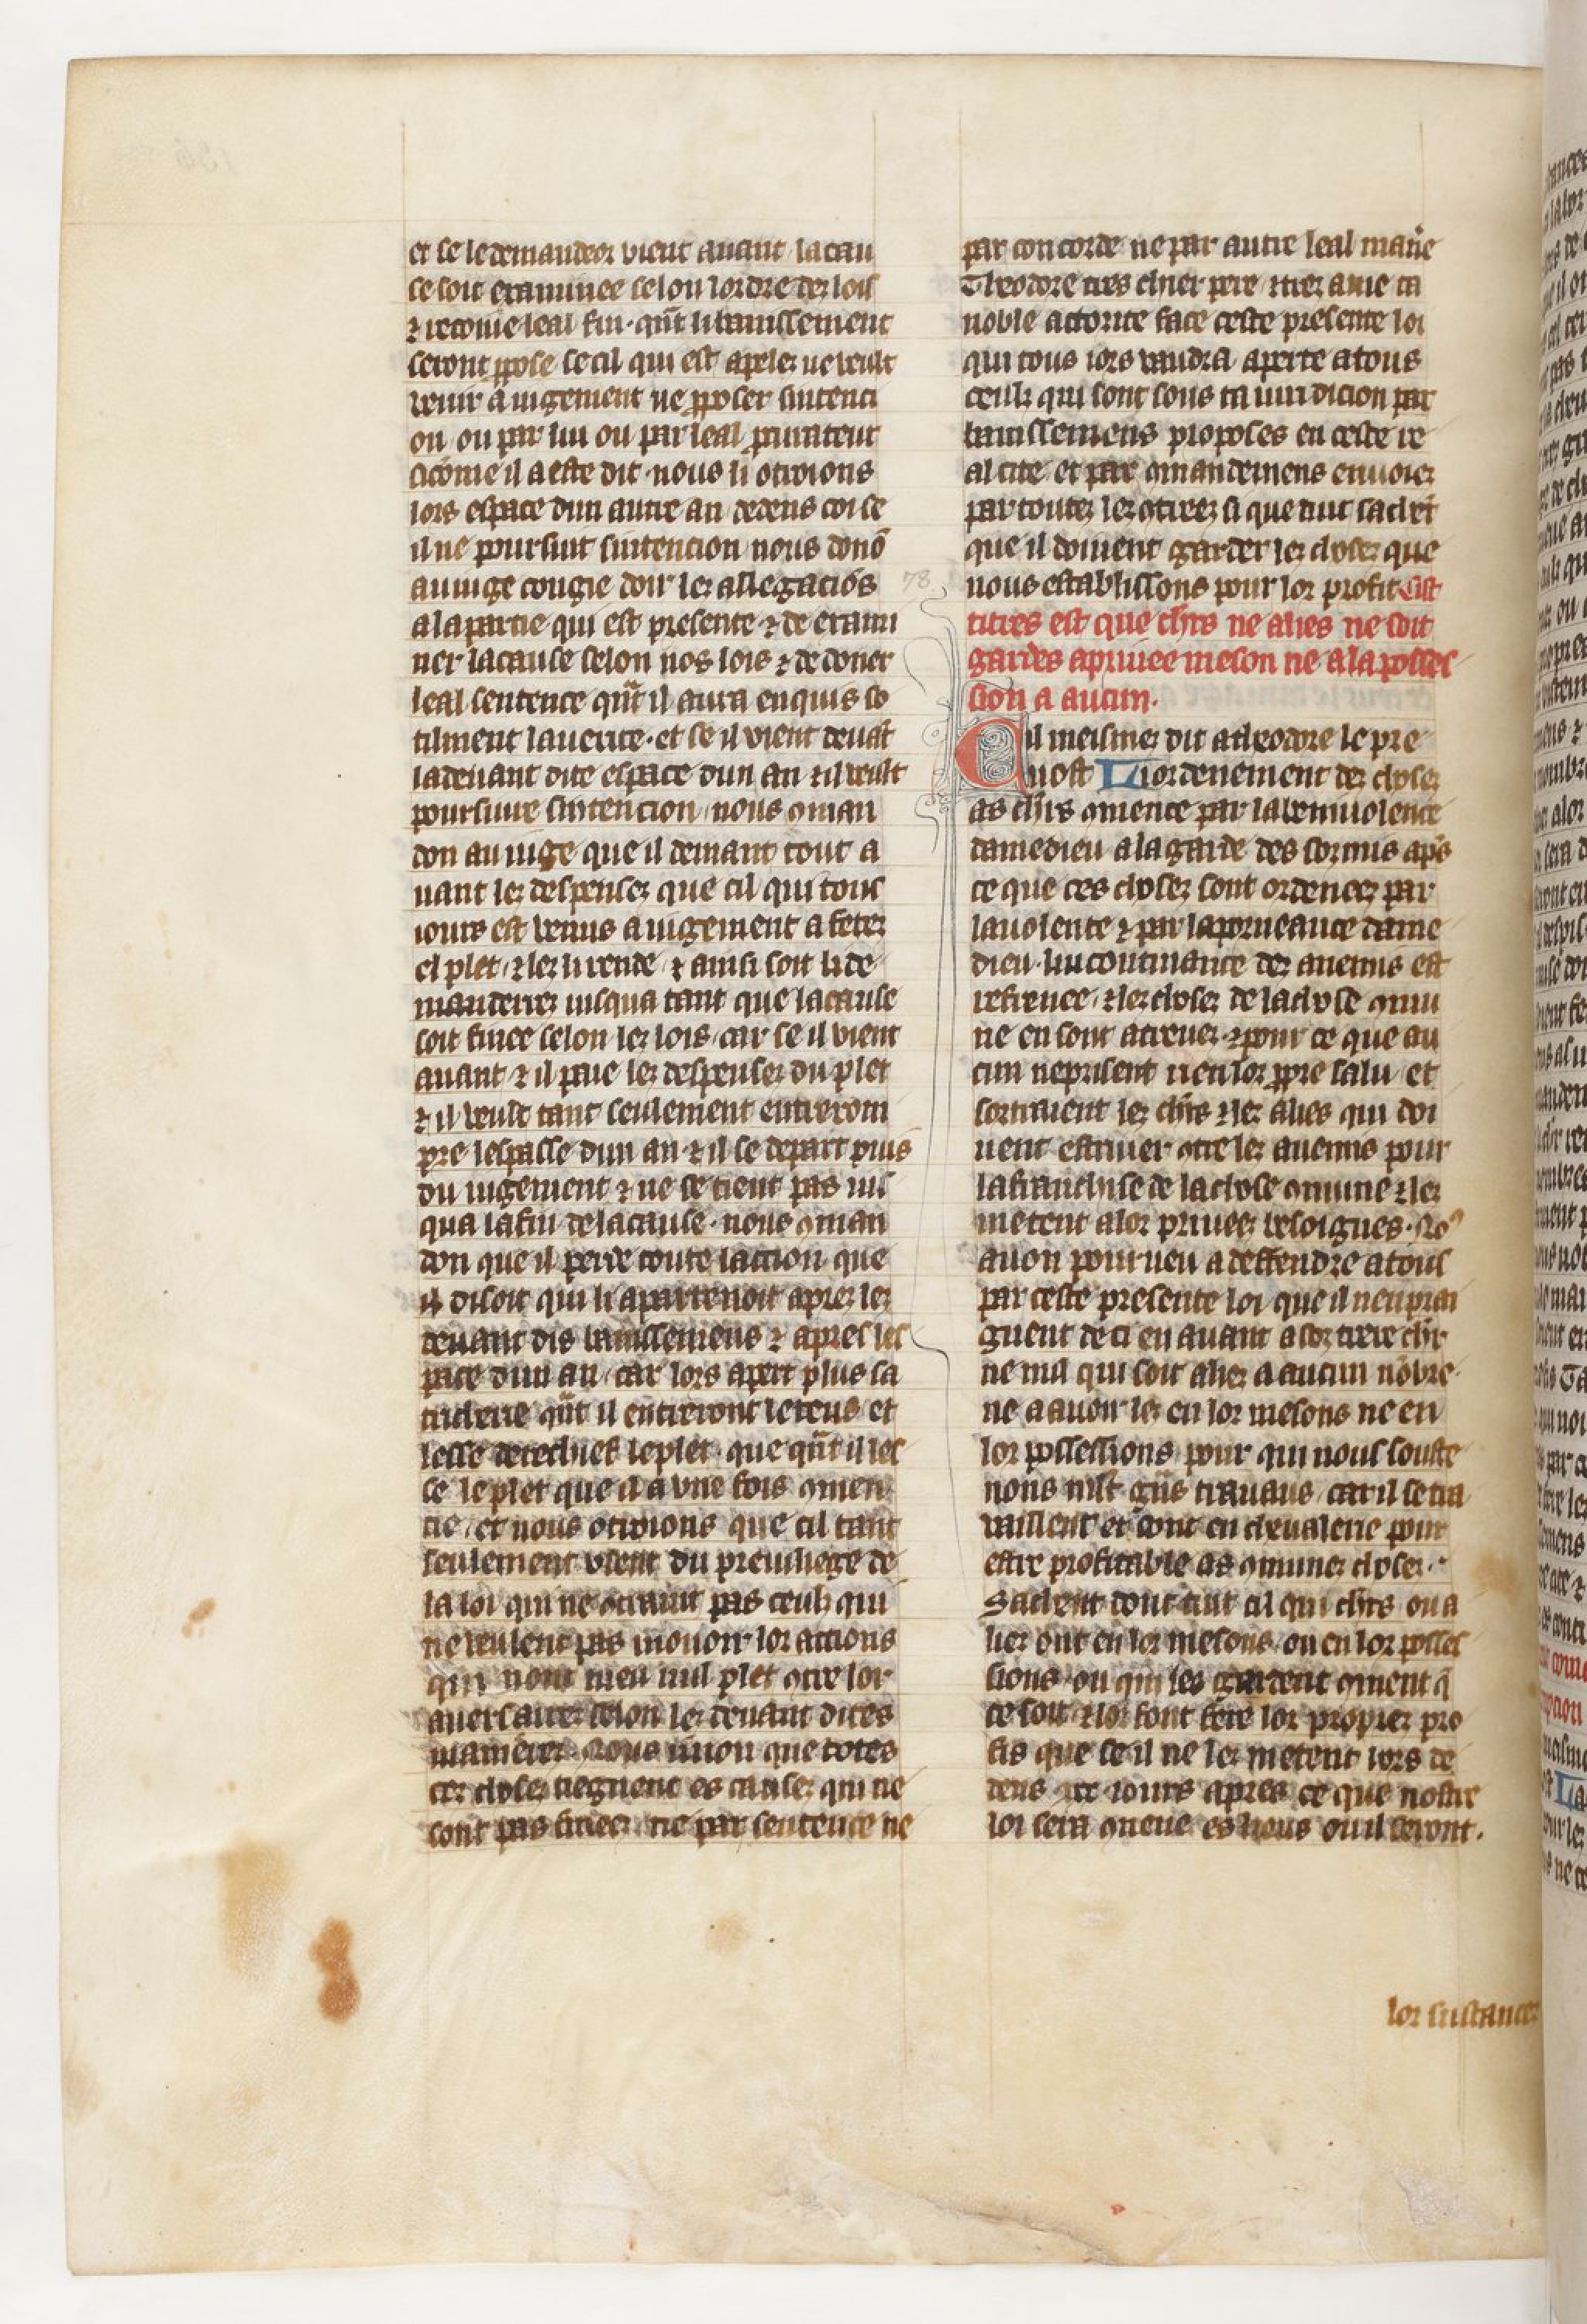 et se le demandeor vient auant la cau
se soit examinee selon lordre dez lois
⁊ recoiue leal fin · qñt li banissement
seront ꝓpose se cil qui est apelez ne veult
venir a iugement ne ꝓposer sintenci
on ou par lui ou par leal ꝓcurateur
si cōme il a este dit · nous li otroions
lors espace dun autre an dedens coi se
il ne poursuit sintencion nous donō
au iuge congie doir lez allegaciōs
a la partie qui est presente ⁊ de exami
ner la cause selon nos lois ⁊ de doner
leal sentence qñt il aura enquis so
tilment la uerite · et se il vient deuāt
la deuant dite espace dun an ⁊ il veult
poursuiure sintencion nous ꝯman
don au iuge que il demant tout a
uant lez despensez que cil qui tous
iours est venus a iugement a fetez
el plet / ⁊ lez li rende ⁊ ainsi soit li de
manderrez iusqua tant que la cause
soit finee selon lez lois / car se il vient
auant ⁊ il paie lez despensez du plet
⁊ il veult tant seulement entrerom
pre lespasse dun an ⁊ il se depart puis
du iugement ⁊ ne se tient pas ius
qua la fin de la cause · nous ꝯman
don que il perde toute laccion que
il disoit qui li apartenoit aprez lez
deuant dis banissemens ⁊ apres les
pace dun an / car lors apert plus sa
tricherie qñt il entreront le tens et
lesse derechief le plet · que qñt il les
se le plet que il a vne fois ꝯmen
cie / et nous otroions que cil tant
seulement vsent du preuilliege de
la loi qui ne ꝯtraint pas ceulz qui
ne veulent pas mouoir lor actions
qui nont meu nul plet ꝯtre lor
auersairez selon lez deuant dites
manierez · Nous uuon que totes
cez chosez tiegnent es causez qui ne
sont pas fineez ne par sentence ne
par concorde ne par autre leal maniē
Theodore tres chier pere ⁊ trez ame ta
noble actorite face ceste presente loi
qui tous iors vaudra aperte a tous
ceulz qui sont sous ta iuridicion par
banissemens proposes en ceste re
al cite et par ꝯmandemens enuoiez
par toutez lez ꝯtreez si que tuit sachēt
que il doiuent garder lez chosez que
nous establissons pour lor profit Cist
titres est que chr̄s ne alies ne soit
gardes a priuee meson ne a la posses
sion a aucun ·
Cil meismez dit a theodore le pre
uost Li ordenement dez chosez
as chr̄s ꝯmence par la beniuolence
damedieu a la garde des sormis apr̄s
ce que ces chosez sont ordeneez par
la uolente ⁊ par la porueance dame
dieu · li ucoutinance dez anemis est
refrenee / ⁊ lez chosez de la chose ꝯmu
ne en sont acreuez · ⁊ pour ce que au
cun ne prisent rien lor ꝓpre salu et
sortraient lez chr̄s ⁊ lez alies qui doi
uent estriuer ꝯtre lez anemis pour
la franchise de la chose ꝯmune ⁊ lez
metent a lor priueez besoignes · Noꝰ
auon pourueu a deffendre a tous
par ceste presente loi que il neuprai
gnent deci en auant a sortrere chr̄
ne nul qui soit aliez a aucun nōbre ·
ne a auoir lez en lor mesons ne en
lor possessions / pour qui nous souste
nons mlt̄ grñs trauaus / car il se tra
uaillent et sont en cheualerie pour
estre profitable as ꝯmunez chosez ·
Sachent dont tuit cil qui chr̄s ou a
liez ont en lor mesons / ou en lor posses
sions / ou qui les gardent ꝯment q̄
ce soit ⁊ lor font fere lor propriez pro
fis que se il ne lez metent hors de
dens xxx iours apres ce que nostre
loi sera ꝯneue es lieus ou il seront ·
78
lor sustancez